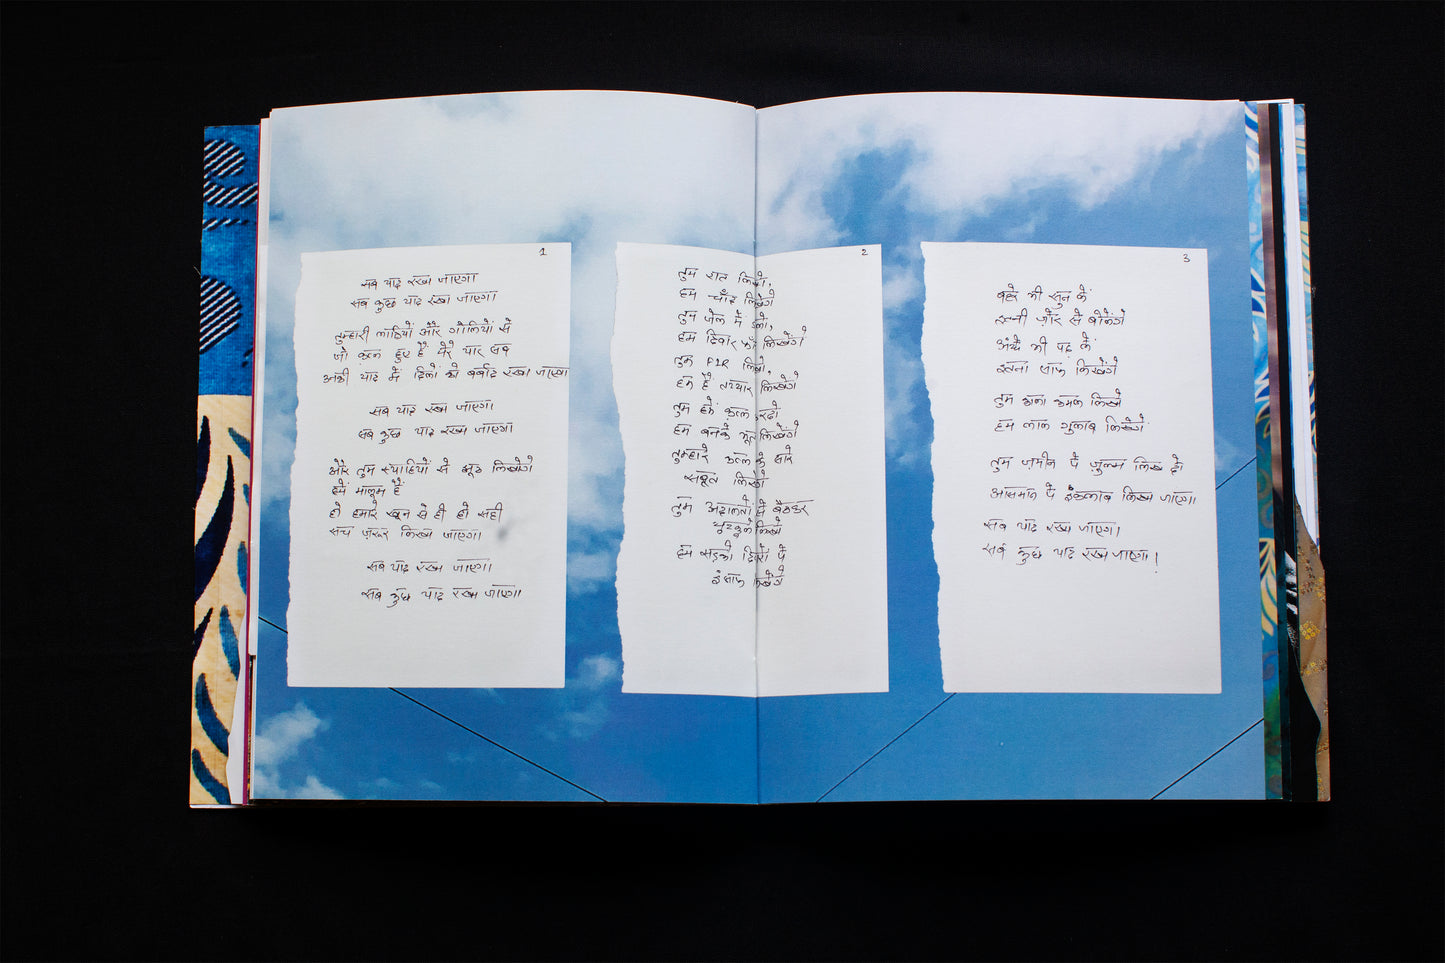 1
सब याद रखा जाएगा
सब कुछ याद रखा जाएगा
तुम्हारी लाठियों और गोलियों से
जो क़त्ल हुए हैं मेरे यार सब
उनकी याद में दिलों को बर्बाद रखा जाएगा
सब याद रखा जाएगा
सब कुछ याद रखा जाएगा
और तुम स्याहियों से झूठ लिखोगे
हमें मालूम है
हो हमारे खून से ही हो सही
सच ज़रूर लिखा जाएगा
सब याद रखा जाएगा
सब कुछ याद रखा जाएगा
2
तुम रात लिखो,
हम चाँद लिखेंगे
तुम जेल में डालो,
हम दिवार फाँद लिखेंगे
तुम FIR लिखो,
हम हैं तय्यार लिखेंगे
तुम हमें क़त्ल करदो
हम बनके भूत लिखेंगे
तुम्हारे क़त्ल के सारे
सबूत लिखेंगे
तुम अदालतों से बैठकर
चुटकुले लिखो
हम सड़कों दिवारों पे
इंसाफ लिखेंगे
3
बहरे भी सुन लें
इतनी ज़ोर से बोलेंगे
अंधे भी पढ़ लें
इतना साफ लिखेंगे
तुम काला कमल लिखो
हम लाल गुलाब लिखेंगे
तुम जमीन पे ज़ुल्म लिख दो
आसमान पे इंकलाब लिखा जाएगा
सब याद रखा जाएगा
सब कुछ याद रखा जाएगा!